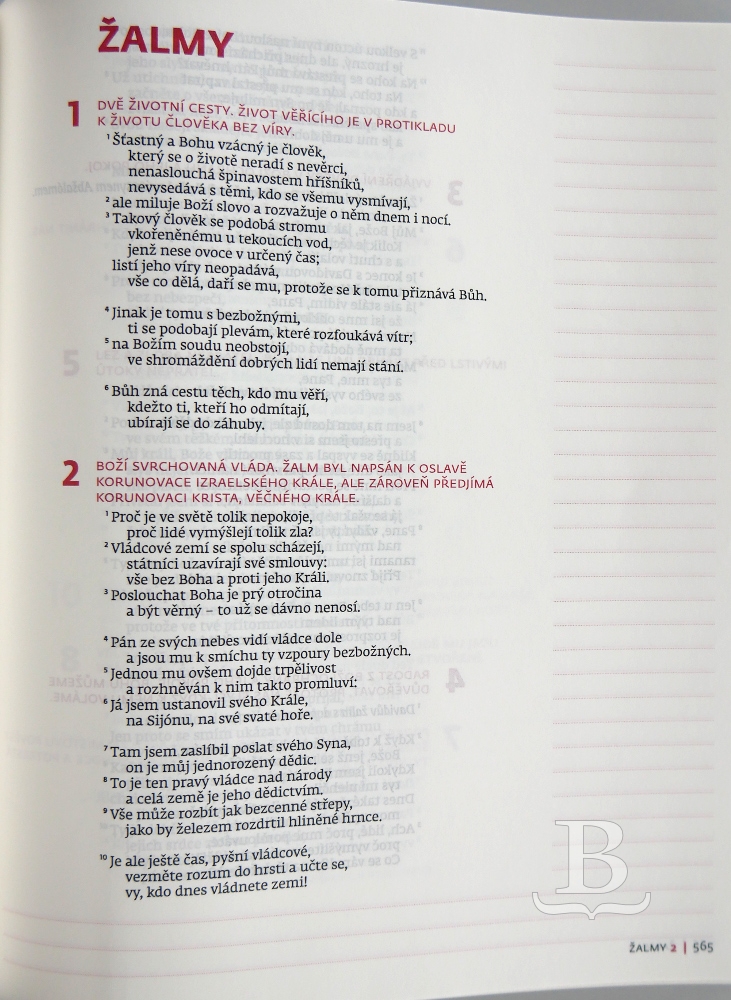 ŽALMY
1 DVĚ ŽIVOTNÍ CESTY. ŽIVOT VĚŘÍCÍHO JE V PROTIKLADU
K ŽIVOTU ČLOVĚKA BEZ VÍRY.
¹ Šťastný a Bohu vzácný je člověk,
který se o životě neradí s nevěrci,
nenaslouchá špinavostem hříšníků,
nevysedává s těmi, kdo se všemu vysmívají,
² ale miluje Boží slovo a rozvažuje o něm dnem i nocí.
³ Takový člověk se podobá stromu
vkořeněnému u tekoucích vod,
jenž nese ovoce v určený čas;
listí jeho víry neopadává,
vše co dělá, daří se mu, protože se k tomu přiznává Bůh.
⁴ Jinak je tomu s bezbožnými,
ti se podobají plevám, které rozfoukává vítr;
⁵ na Božím soudu neobstojí,
ve shromáždění dobrých lidí nemají stání.
⁶ Bůh zná cestu těch, kdo mu věří,
kdežto ti, kteří ho odmítají,
ubírají se do záhuby.
2 BOŽÍ SVRCHOVANÁ VLÁDA. ŽALM BYL NAPSÁN K OSLAVĚ
KORUNOVACE IZRAELSKÉHO KRÁLE, ALE ZÁROVEŇ PŘEDJÍMÁ
KORUNOVACI KRISTA, VĚČNÉHO KRÁLE.
¹ Proč je ve světě tolik nepokoje,
proč lidé vymýšlejí tolik zla?
² Vládcové zemí se spolu scházejí,
státníci uzavírají své smlouvy:
vše bez Boha a proti jeho Králi.
³ Poslouchat Boha je prý otročina
a být věrný – to už se dávno nenosí.
⁴ Pán ze svých nebes vidí vládce dole
a jsou mu k smíchu ty vzpoury bezbožných.
⁵ Jednou mu ovšem dojde trpělivost
a rozhněván k nim takto promluví:
⁶ Já jsem ustanovil svého Krále,
na Sijónu, na své svaté hoře.
⁷ Tam jsem zaslíbil poslat svého Syna,
on je můj jednorozený dědic.
⁸ To je ten pravý vládce nad národy
a celá země je jeho dědictvím.
⁹ Vše může rozbít jak bezcenné střepy,
jako by železem rozdrtil hliněné hrnce.
¹⁰ Je ale ještě čas, pyšní vládcové,
vezměte rozum do hrsti a učte se,
vy, kdo dnes vládnete zemi!
B
ŽALMY 2 | 565